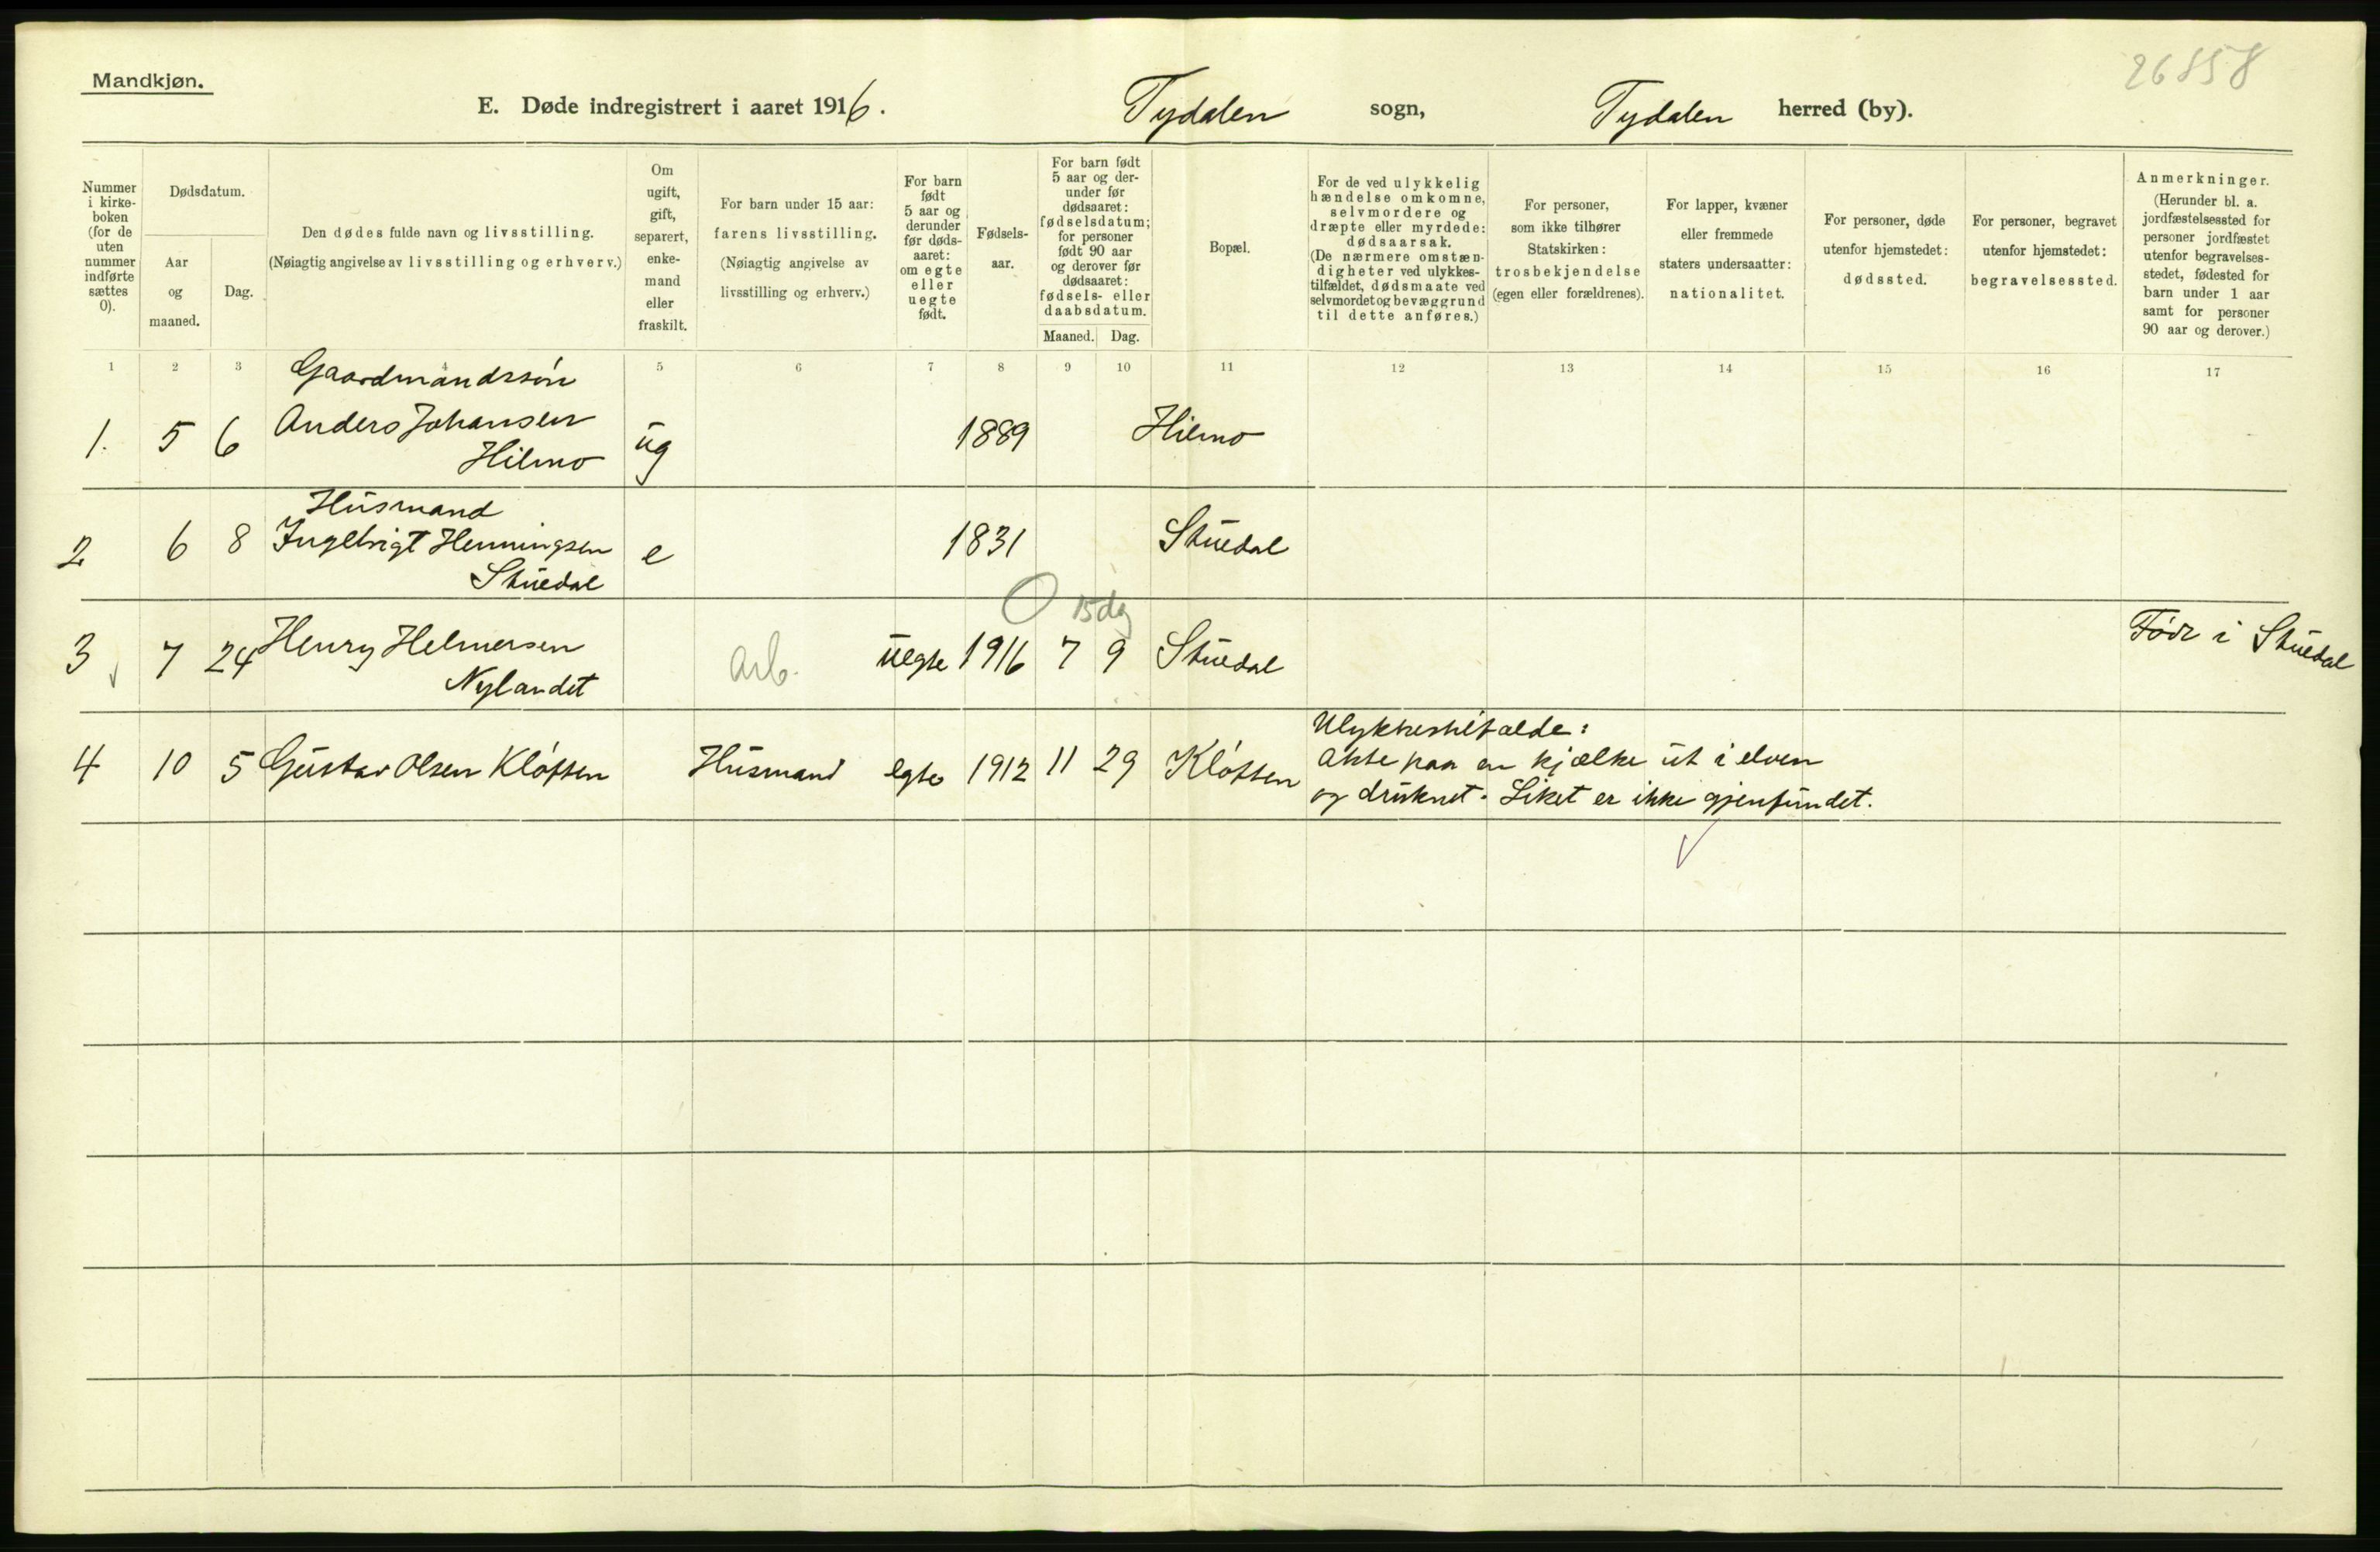 26858
Mandkjøn.
E. Døde indregistrert i aaret 1916. Tydalen sogn, Tydalen herred (by).
Nummer
i kirke-
boken
(for de
uten
nummer
indførte
sættes
0).
Dødsdatum.
Aar
og
maaned.
Dag.
Den dødes fulde navn og livsstilling.
(Nøiagtig angivelse av livsstilling og erhverv.)
Om
ugift,
gift,
separert,
enke-
mand
eller
fraskilt.
For barn under 15 aar:
farens livsstilling.
(Nøiagtig angivelse av
livsstilling og erhverv.)
For barn
født
5 aar og
derunder
før døds-
aaret:
om egte
eller
uegte
født.
Fødsels-
aar.
For barn født
5 aar og der-
under før
dødsaaret:
fødselsdatum;
for personer
født 90 aar
og derover før
dødsaaret:
fødsels- eller
daabsdatum.
Maaned. Dag.
Bopæl.
For de ved ulykkelig
hændelse omkomne,
selvmordere og
dræpte eller myrdede:
dødsaarsak.
(De nærmere omstæn-
digheter ved ulykkes-
tilfældet, dødsmaate ved
selvmordet og bevæggrund
til dette anføres.)
For personer,
som ikke tilhører
Statskirken:
trosbekjendelse
(egen eller forældrenes).
For lapper, kvæner
eller fremmede
staters undersaatter:
nationalitet.
For personer, døde
utenfor hjemstedet:
dødssted.
For personer, begravet
utenfor hjemstedet:
begravelsessted.
Anmerkninger.
(Herunder bl. a.
jordfæstelsessted for
personer jordfæstet
utenfor begravelses-
stedet, fødested for
barn under 1 aar
samt for personer
90 aar og derover.)
1 2 3 4 5 6 7 8 9 10 11 12 13 14 15 16 17
Gaardmandssøn
1. 5 6 Anders Johansen ug 1889 Hilmo
Hilmo
Husmand
2 6 8 Ingebrigt Henningsen e 1831 Stuedal
Stuedal
0 15 dg
3 7 24 Henry Helmersen arb. uegte 1916 7 9 Stuedal Født i Stuedal
Nylandet
Ulykkestilfælde:
4 10 5 Gustav Olsen Kløften Husmand egte 1912 11 29 Kløften Akte paa en kjælke ut i elven
og druknet. Liket er ikke gjenfundet.